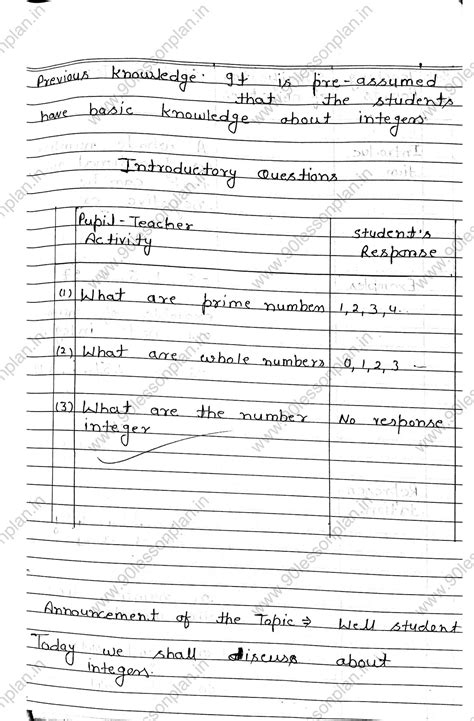 Previous Knowledge. It is pre-assumed
that the students
have basic knowledge about integers.
Introductory Questions
Pupil-Teacher Activity
Student's Response
(1) What are prime numbers 1, 2, 3, 4..
(2) What are whole numbers 0, 1, 2, 3 --
(3) What are the number integer
No response
Announcement of the Topic ⇒ Well student
Today we shall discuss about
integers.
www.90lessonplan.in